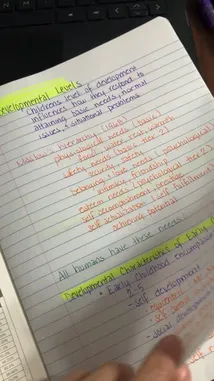 Developmental Levels
Childrens level of development
influences how they respond to
attaining basic needs, normal
issues, & situational problems
Maslow's hierarchy
physiological needs (basic
food, water, rest,
safety needs (basic tier 2)
security, safety
belonging & love needs (psychological
intimacy, friendship
esteem needs (psychological tier 2)
self accomplishment, prestige
self actualization (self fulfillment
achieving potential
All humans have these needs
Developmental Characteristics of Early
Early childhood encompasses
2-6
self development
social development